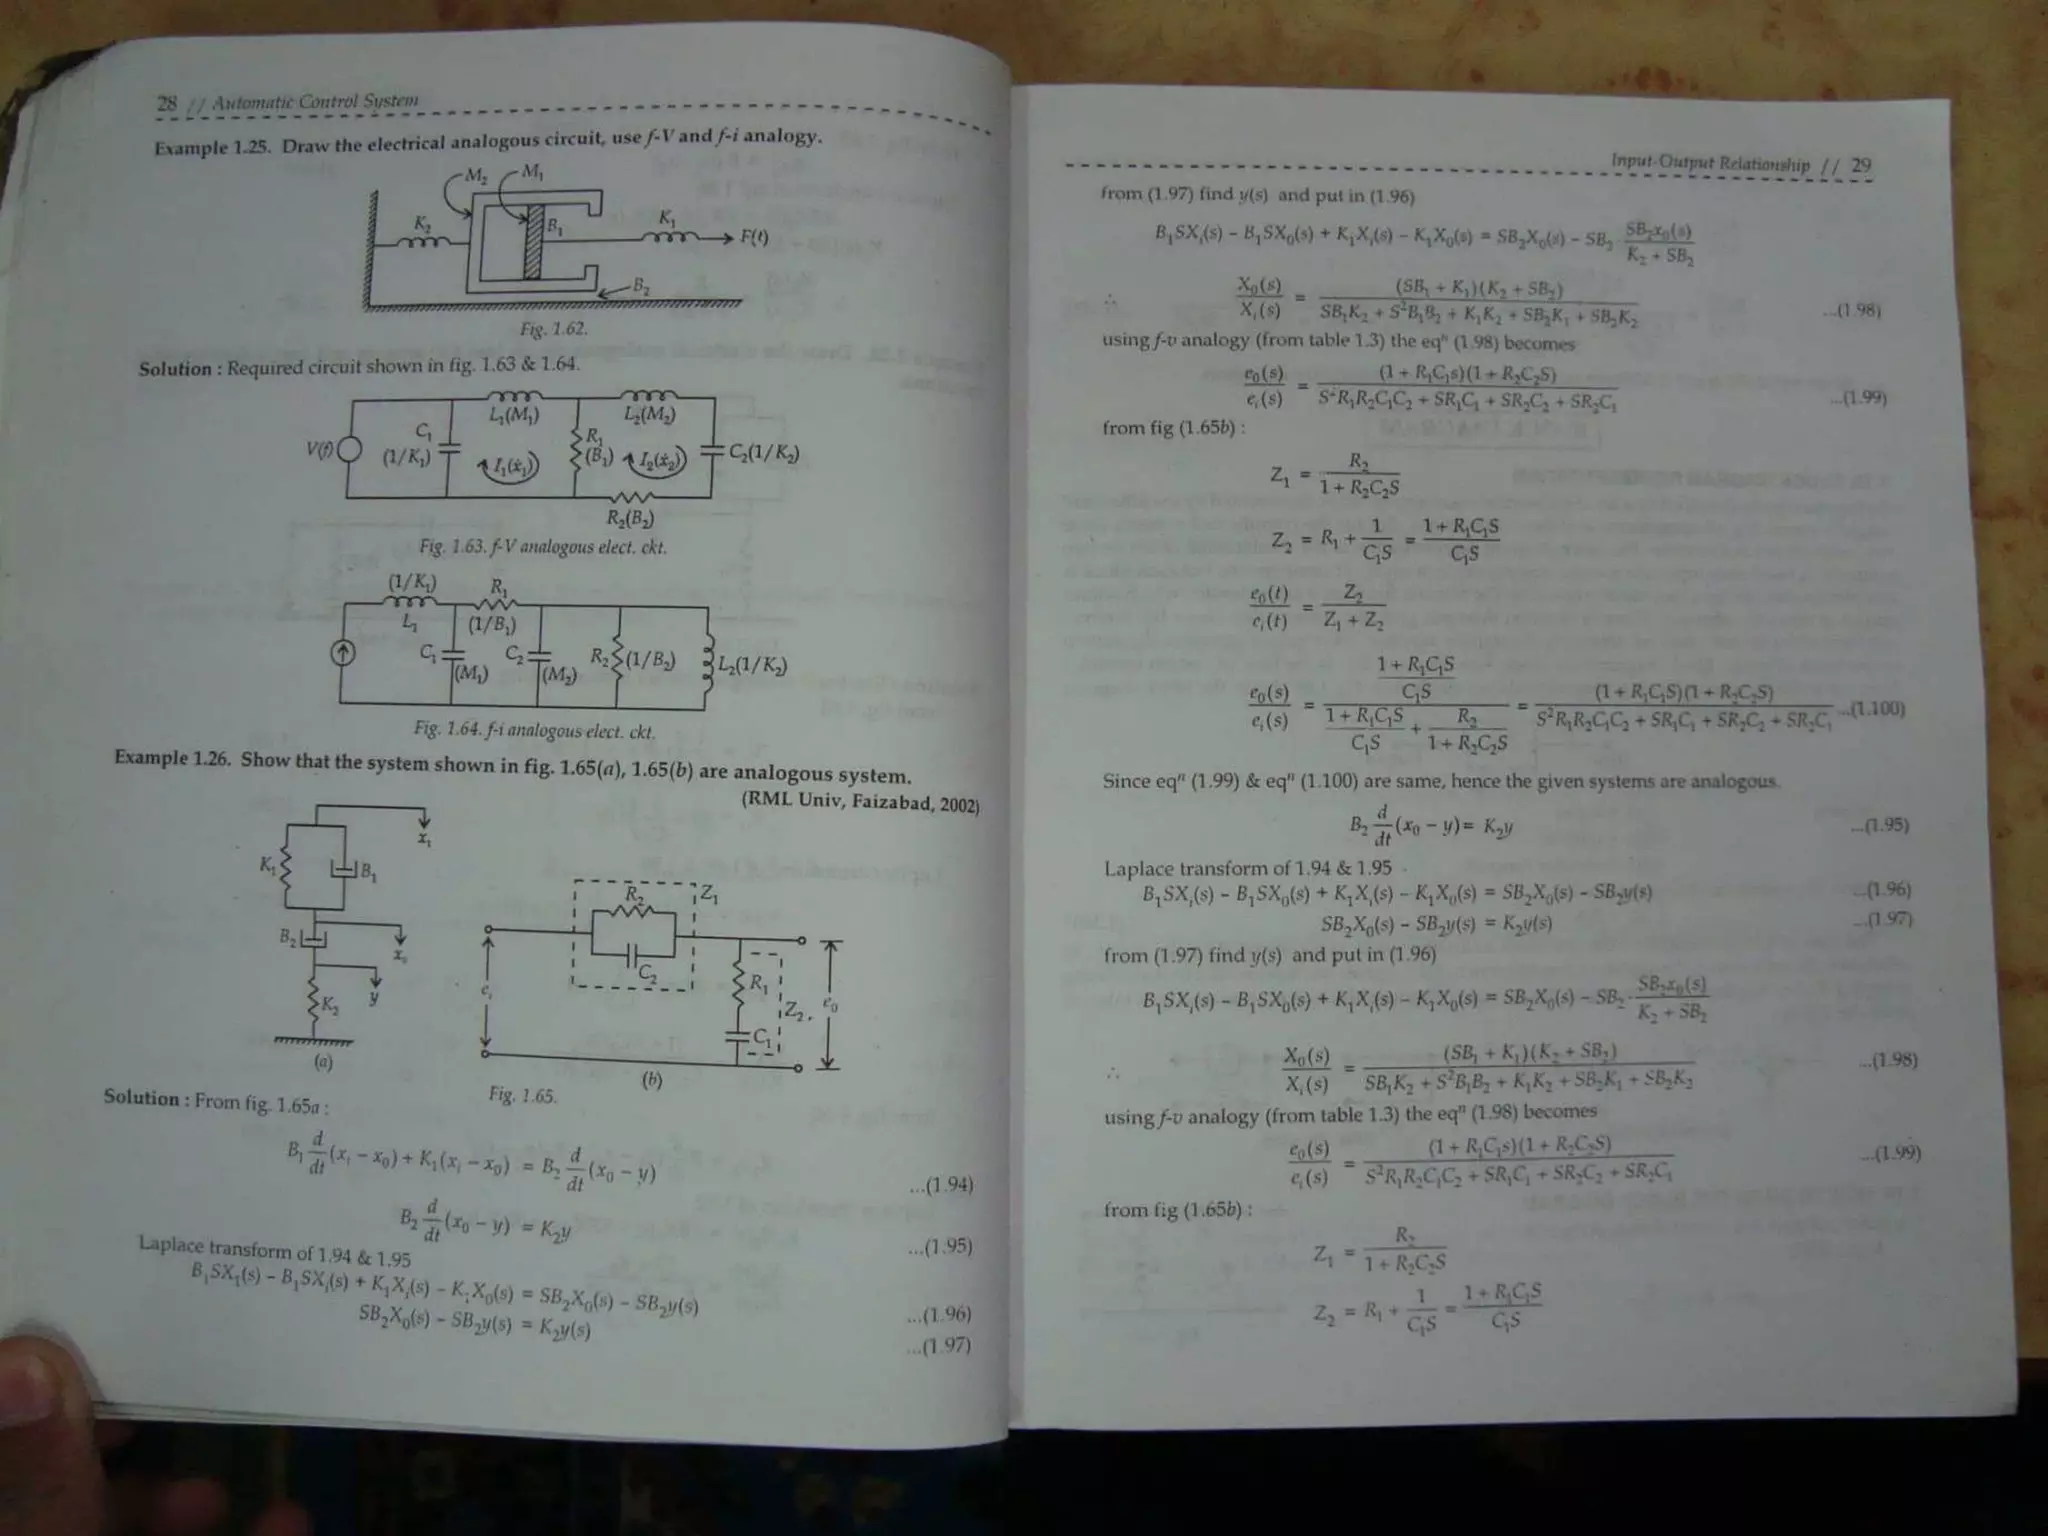 28 // Automatic Control System
Example 1.25. Draw the electrical analogous circuit, use f-V and f-i analogy.
M₂ M₁
K₂ B₁ K₁ F(t)
B₂
Fig. 1.62.
Solution : Required circuit shown in fig. 1.63 & 1.64.
L₁(M₁) L₂(M₂)
V(f) C₁ (1/K₁) I₁(ẋ₁) R₁ (B₁) I₂(ẋ₂) C₂(1/K₂)
R₂(B₂)
Fig. 1.63. f-V analogous elect. ckt.
(1/K₁) R₁
L₁ (1/B₁)
C₁ (M₁) C₂ (M₂) R₂ (1/B₂) L₂(1/K₂)
Fig. 1.64. f-i analogous elect. ckt.
Example 1.26. Show that the system shown in fig. 1.65(a), 1.65(b) are analogous system.
(RML Univ, Faizabad, 2002)
x₁
K₁ B₁
B₂ x₀
y
K₂
(a)
R₂ Z₁
C₂
eᵢ R₁ Z₂, e₀
C₁
(b)
Fig. 1.65.
Solution : From fig. 1.65a :
B₁ d/dt (xᵢ – x₀) + K₁(xᵢ – x₀) = B₂ d/dt (x₀ – y) ...(1.94)
B₂ d/dt (x₀ – y) = K₂y ...(1.95)
Laplace transform of 1.94 & 1.95
B₁SX₁(s) – B₁SXᵢ(s) + K₁Xᵢ(s) – K₁X₀(s) = SB₂X₀(s) – SB₂y(s) ...(1.96)
SB₂X₀(s) – SB₂y(s) = K₂y(s) ...(1.97)
Input-Output Relationship // 29
from (1.97) find y(s) and put in (1.96)
B₁SXᵢ(s) – B₁SX₀(s) + K₁Xᵢ(s) – K₁X₀(s) = SB₂X₀(s) – SB₂ · SB₂x₀(s) / K₂ + SB₂
∴ X₀(s) / Xᵢ(s) = (SB₁ + K₁)(K₂ + SB₂) / SB₁K₂ + S²B₁B₂ + K₁K₂ + SB₂K₁ + SB₂K₂ ...(1.98)
using f-v analogy (from table 1.3) the eqⁿ (1.98) becomes
e₀(s) / eᵢ(s) = (1 + R₁C₁s)(1 + R₂C₂S) / S²R₁R₂C₁C₂ + SR₁C₁ + SR₂C₂ + SR₂C₁ ...(1.99)
from fig (1.65b) :
Z₁ = R₂ / 1 + R₂C₂S
Z₂ = R₁ + 1 / C₁S = 1 + R₁C₁S / C₁S
e₀(t) / eᵢ(t) = Z₂ / Z₁ + Z₂
e₀(s) / eᵢ(s) = (1 + R₁C₁S / C₁S) / (1 + R₁C₁S / C₁S + R₂ / 1 + R₂C₂S) = (1 + R₁C₁S)(1 + R₂C₂S) / S²R₁R₂C₁C₂ + SR₁C₁ + SR₂C₂ + SR₂C₁ ...(1.100)
Since eqⁿ (1.99) & eqⁿ (1.100) are same, hence the given systems are analogous.
B₂ d/dt (x₀ – y) = K₂y ...(1.95)
Laplace transform of 1.94 & 1.95
B₁SXᵢ(s) – B₁SX₀(s) + K₁Xᵢ(s) – K₁X₀(s) = SB₂X₀(s) – SB₂y(s) ...(1.96)
SB₂X₀(s) – SB₂y(s) = K₂y(s) ...(1.97)
from (1.97) find y(s) and put in (1.96)
B₁SXᵢ(s) – B₁SX₀(s) + K₁Xᵢ(s) – K₁X₀(s) = SB₂X₀(s) – SB₂ · SB₂x₀(s) / K₂ + SB₂
∴ X₀(s) / Xᵢ(s) = (SB₁ + K₁)(K₂ + SB₂) / SB₁K₂ + S²B₁B₂ + K₁K₂ + SB₂K₁ + SB₂K₂ ...(1.98)
using f-v analogy (from table 1.3) the eqⁿ (1.98) becomes
e₀(s) / eᵢ(s) = (1 + R₁C₁s)(1 + R₂C₂S) / S²R₁R₂C₁C₂ + SR₁C₁ + SR₂C₂ + SR₂C₁ ...(1.99)
from fig (1.65b) :
Z₁ = R₂ / 1 + R₂C₂S
Z₂ = R₁ + 1 / C₁S = 1 + R₁C₁S / C₁S